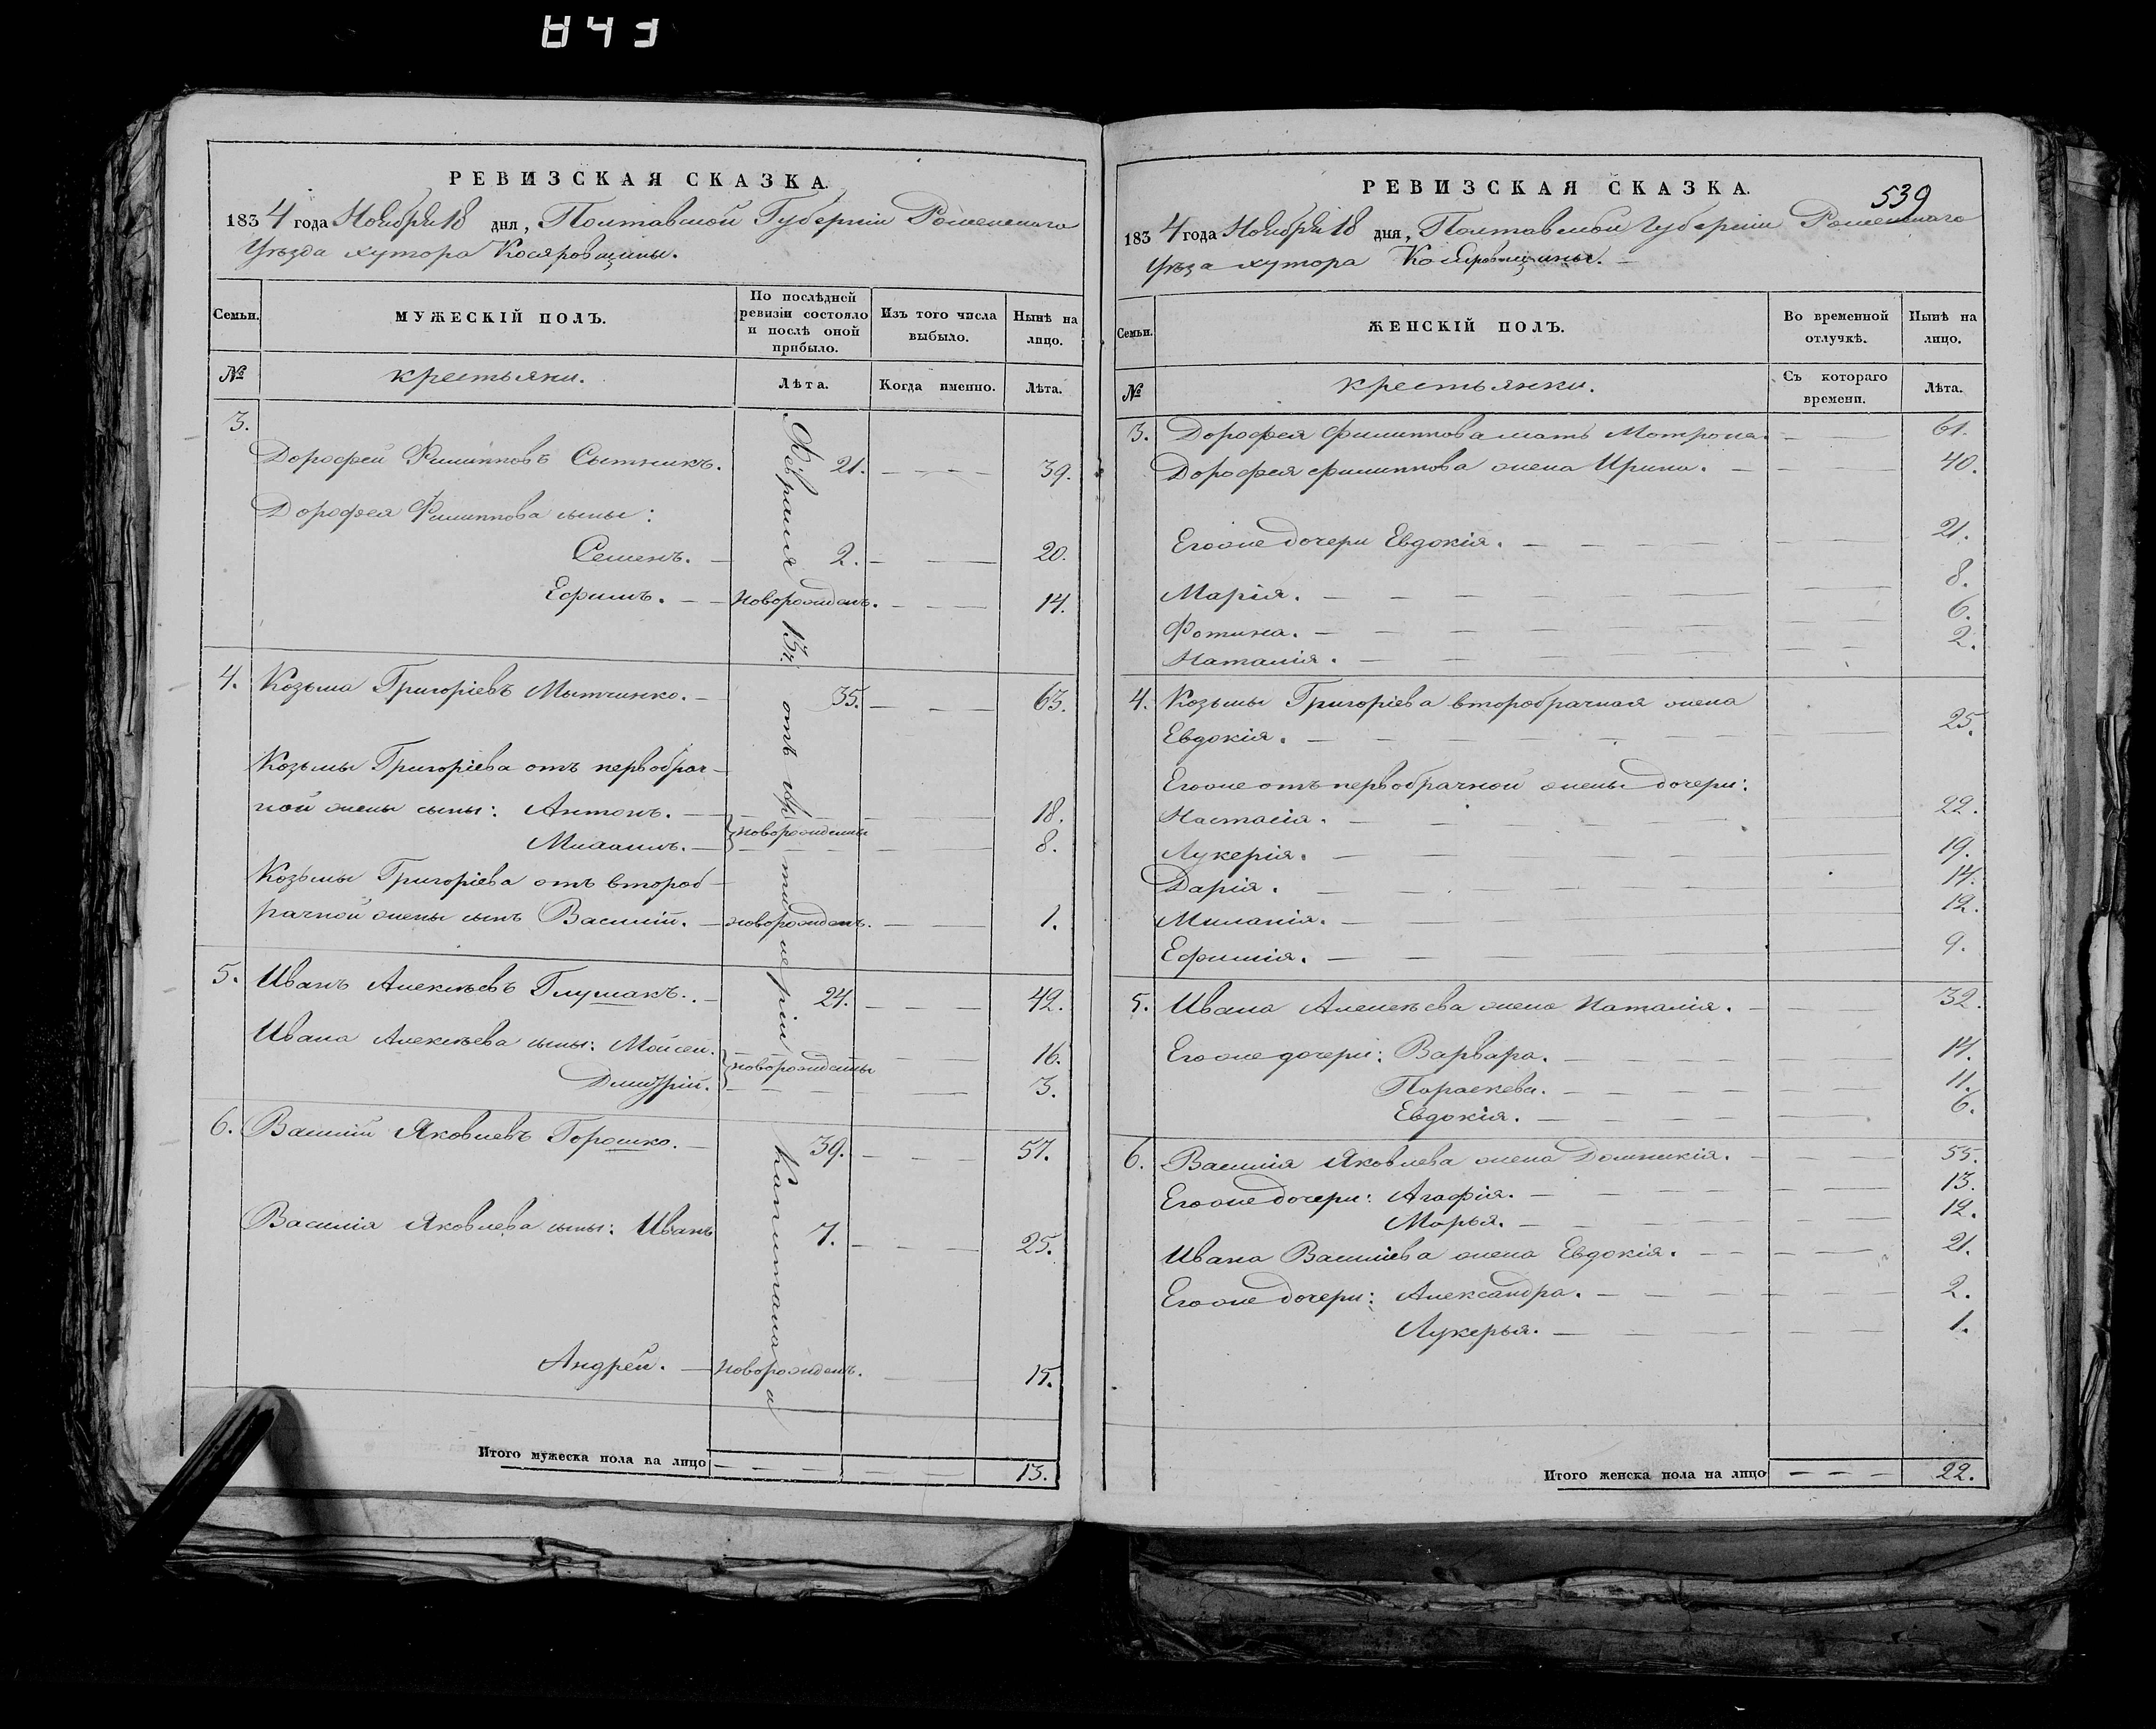 843
РЕВИЗСКАЯ СКАЗКА.
1834 года Ноября 18 дня, Полтавской Губернии Роменского
Уѣзда хутора Косяровщины.
Семьи.
МУЖЕСКІЙ ПОЛЪ.
По послѣдней ревизіи состояло и послѣ оной прибыло.
Изъ того числа выбыло.
Нынѣ на лицо.
№
крестьяни.
Лѣта.
Когда именно.
Лѣта.
3.
Дорофей Филипповъ Сытникъ. 21. 39.
Дорофея Филиппова сыны:
Семенъ. 2. 20.
Ефимъ. Новорожденъ. 14.
4. Козьма Григоріевъ 35. 63.
Козьмы Григоріева отъ первобрач-
ной жены сыны: Антонъ. 18.
новорождены
8.
Козьмы Григоріева отъ второб-
рачной жены сынъ Василій. новорожденъ. 1.
5. Иванъ Алексѣевъ Глушакъ. 24. 42.
Ивана Алексѣева сыны: Мойсей. 16.
новорождены
Димитрій. 3.
6. Василій Яковлевъ Горошко. 39. 57.
Василія Яковлева сыны: Иванъ 7. 25.
Андрей. Новорожденъ. 15.
Февраля 13 отъ
Итого мужеска пола на лицо 13.
РЕВИЗСКАЯ СКАЗКА.
539
1834 года Ноября 18 дня, Полтавской Губерніи Роменского
Уѣзда хутора Косяровщины.
Семьи.
ЖЕНСКІЙ ПОЛЪ.
Во временной отлучкѣ.
Нынѣ на лицо.
№
крестьянки.
Съ котораго времени.
Лѣта.
3. Дорофея Филиппова мать Мотрона. 61.
Дорофея Филиппова жена Ирина. 40.
Егоже дочери Евдокія. 21.
Марія. 8.
Фотина. 6.
Наталія. 2.
4. Козьмы Григоріева второбрачная жена
Евдокія. 25.
Егоже отъ первобрачной жены дочери:
Настасія. 22.
Лукерія. 19.
Дарія. 14.
Миланія. 12.
Ефимія. 9.
5. Ивана Алексѣева жена Наталія. 32.
Егоже дочери: Варвара. 14.
Параскева. 11.
Евдокія. 6.
6. Василія Яковлева жена Домникія. 55.
Егоже дочери: Агафія. 13.
Марья. 12.
Ивана Василіева жена Евдокія. 21.
Егоже дочери: Александра. 2.
Лукерья. 1.
Итого женска пола на лицо 22.